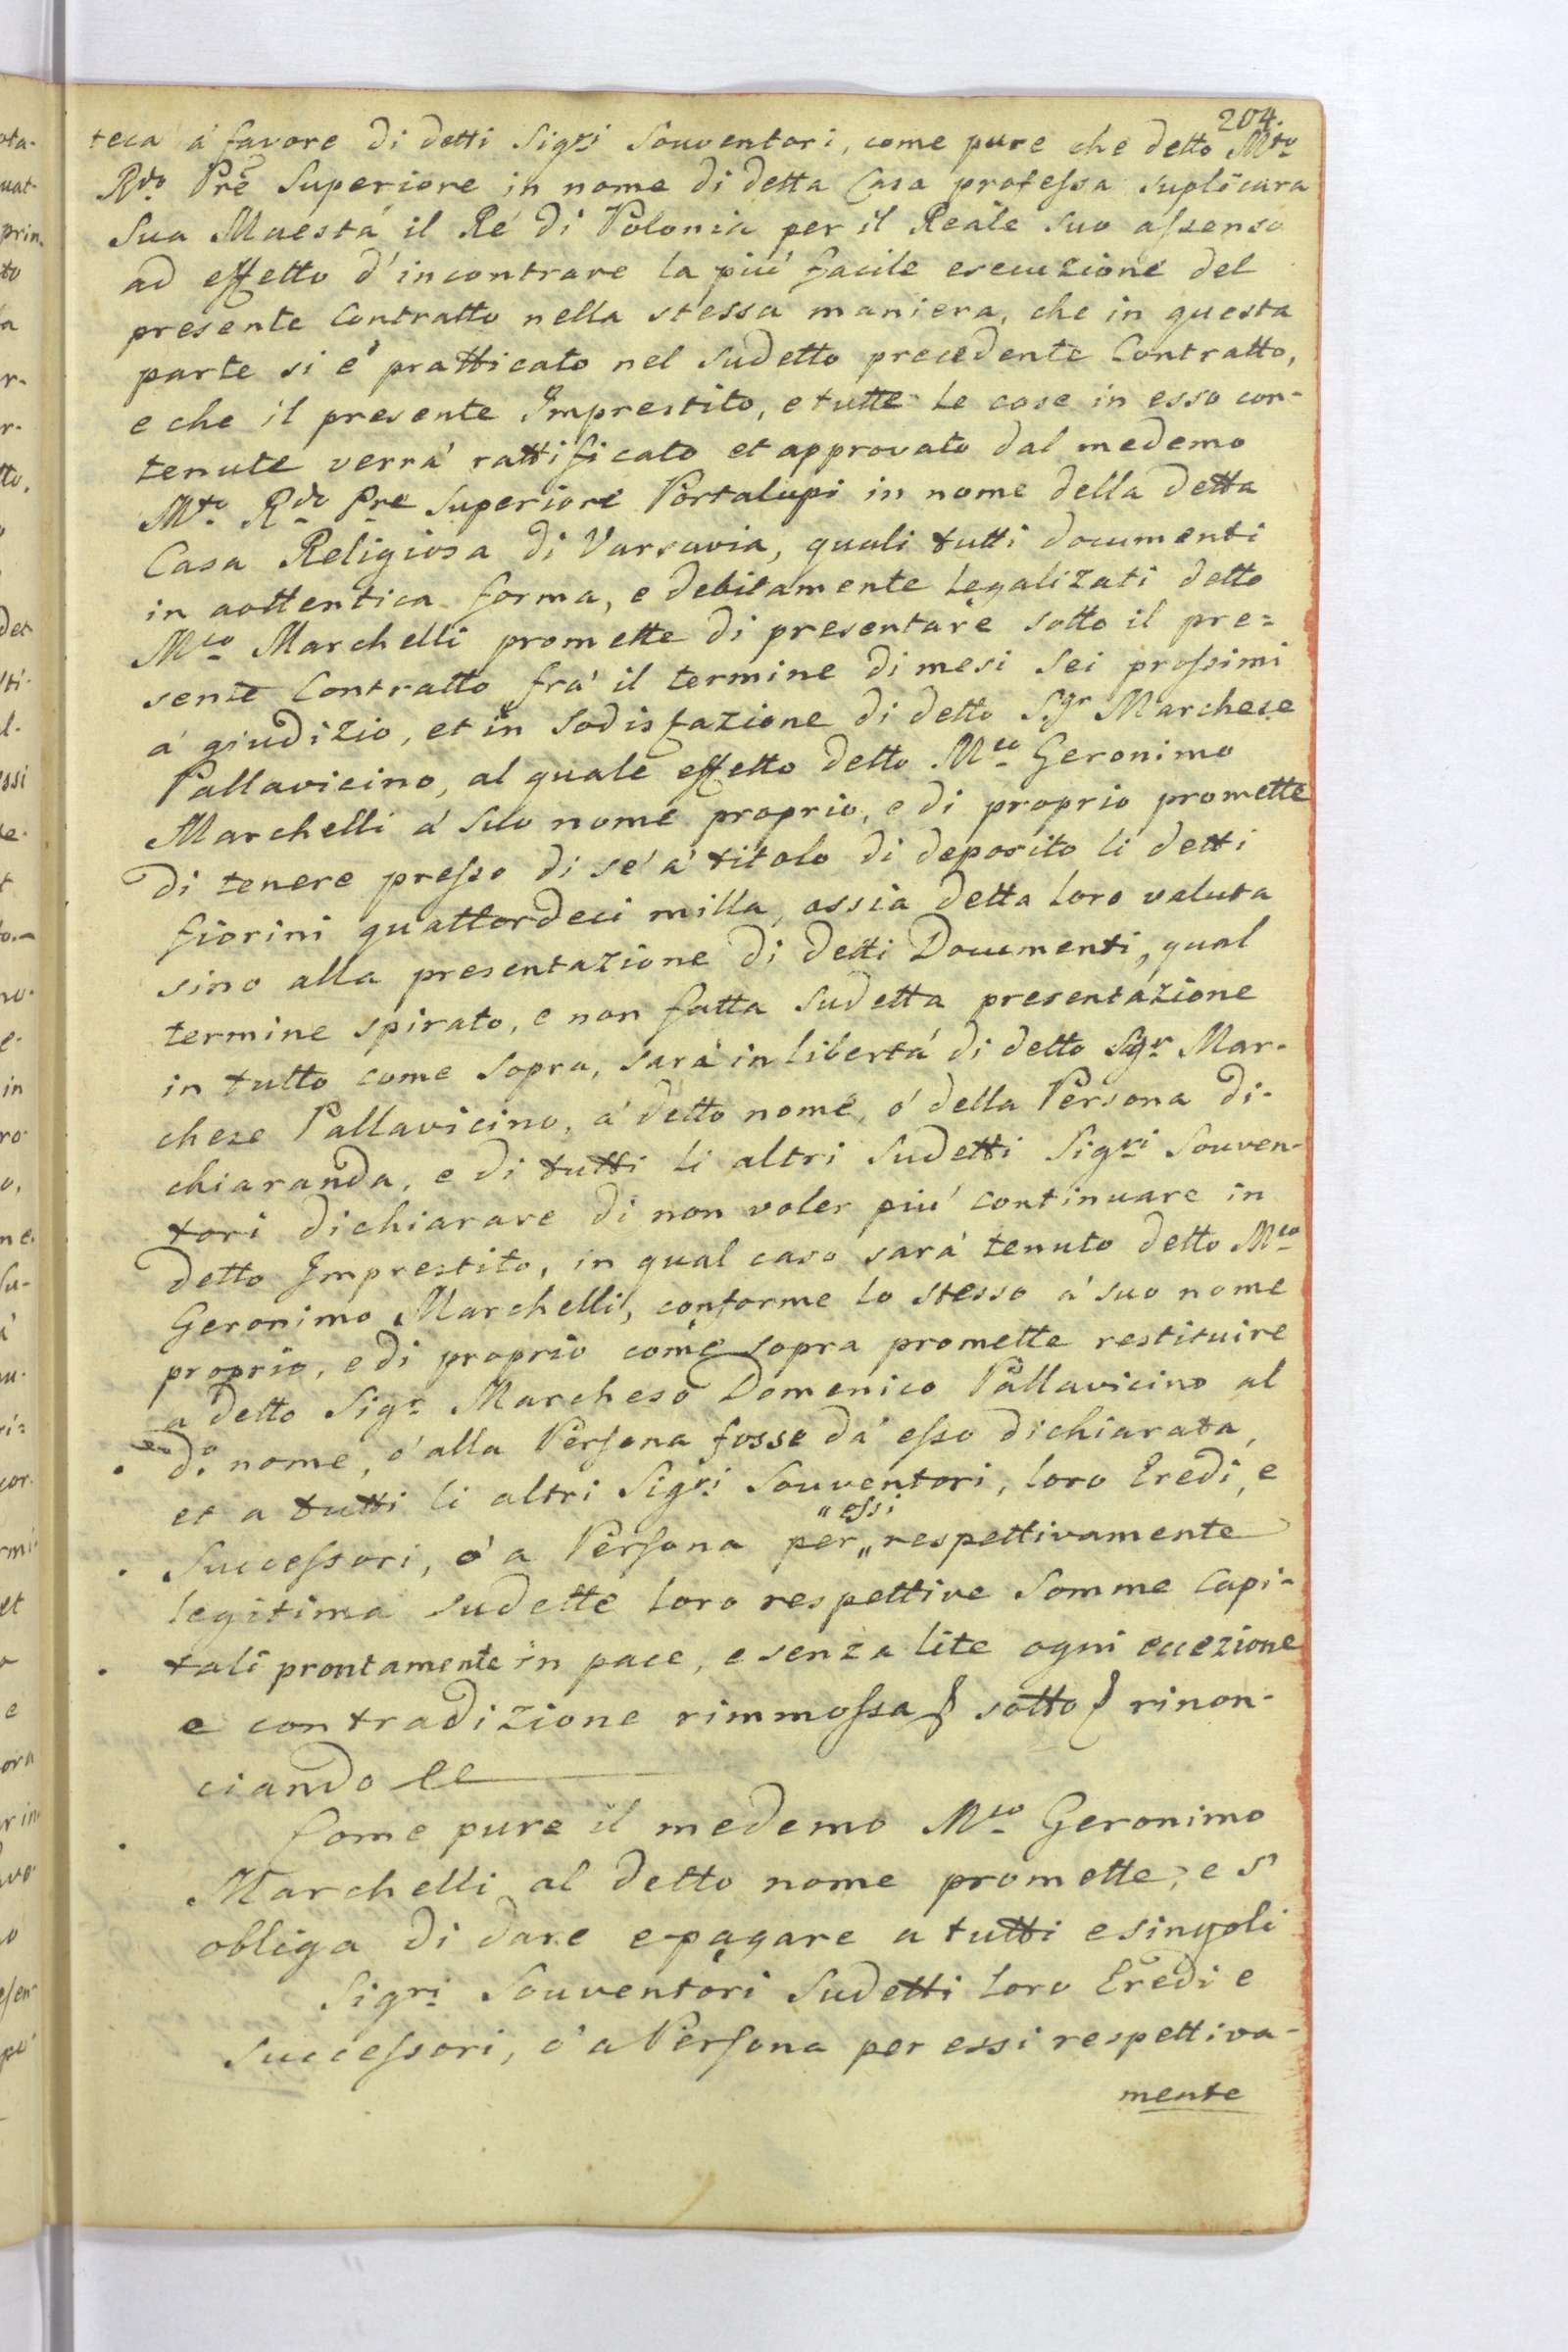 204.
teca á favore di detti Sigri Souventori, come pure che detto Mto
Rdo Pre Superiore in nome di detta Casa professa suplicara
Sua Maestá il Ré di Polonia per il Reale suo assenso
ad effetto d'incontrare la piú facile esecuzione del
presente Contratto nella stessa maniera, che in questa
parte si é pratticato nel sudetto precedente Contratto,
e che il presente Imprestito, e tutte le cose in esso con-
tenute verrá rattificato et approvato dal medemo
Mto Rdo Pre Superiore Portalupi in nome della detta
Casa Religiosa di Varsavia, quali tutti documenti
in auttentica forma, e debitamente legalizati detto
Mco Marchelli promette di presentare sotto il pre=
sente Contratto frá il termine di mesi sei prossimi
á giudizio, et in sodisfazione di detto Sgr Marchese
Pallavicino, al quale effetto detto Mco Geronimo
Marchelli á suo nome proprio, e di proprio promette
di tenere presso di sé á titolo di deposito li detti
fiorini quattordeci milla, ossia detta loro valuta
sino alla presentazione di detti Documenti, qual
termine spirato, e non fatta sudetta presentazione
in tutto come sopra, sará in libertá di detto Sgr Mar-
chese Pallavicino, á detto nome, ó della Persona di-
chiaranda, e di tutti li altri sudetti Sigri Souven-
tori dichiarare di non voler piú continuare in
detto Imprestito, in qual caso sará tenuto detto Mco
Geronimo Marchelli, conforme lo stesso á suo nome
proprio, e di proprio come sopra promette restituire
a detto Sigr Marchese Domenico Pallavicino al
do nome, ó alla Persona fosse dá esso dichiarata,
et a tutti li altri Sigri Souventori, loro Eredi, e
" essi
Successori, ó a Persona per „ respettivamente
legitima sudette loro respettive somme Capi-
tali prontamente in pace, e senza lite ogni eccezione
e contradizione rimmossa § sotto § rinon-
ciando &c
Come pure il medemo Mco Geronimo
Marchelli al detto nome promette, e s'
obliga di dare e pagare a tutti e singoli
Sigri Souventori sudetti loro Eredi e
Successori, ó a Persona per essi respettiva-
mente